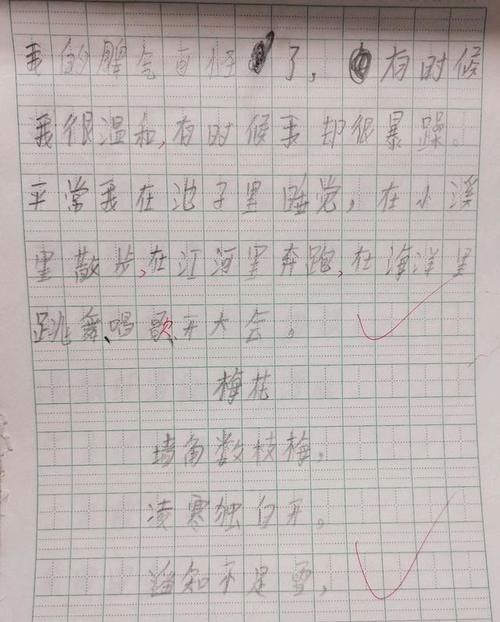 我的脾气可怪了，有时候
我很温和,有时候我却很暴躁。
平常我在池子里睡觉，在小溪
里散步,在江河里奔跑,在海洋里
跳舞、唱歌、开大会。
梅花
墙角数枝梅。
凌寒独自开。
遥知不是雪，